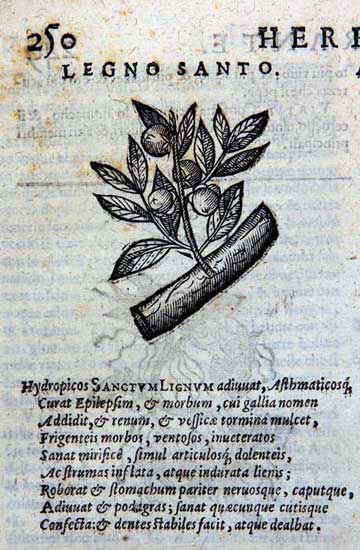 250 HERB
LEGNO SANTO.
Hydropicos SANCTVM LIGNVM adiuuat, Aſthmaticosq́,
Curat Epilepſim, & morbum, cui gallia nomen
Addidit, & renum, & veſſicæ tormina mulcet,
Frigenteis morbos, ventoſos, inueteratos
Sanat mirificè, ſimul articulosq́, dolenteis,
Ac ſtrumas inflata, atque indurata lienis;
Roborat & ſtomachum pariter neruosque, caputque,
Adiuuat & podagras; ſanat quæcunque cutisque
Confecta: & dentes ſtabiles facit, atque dealbat.